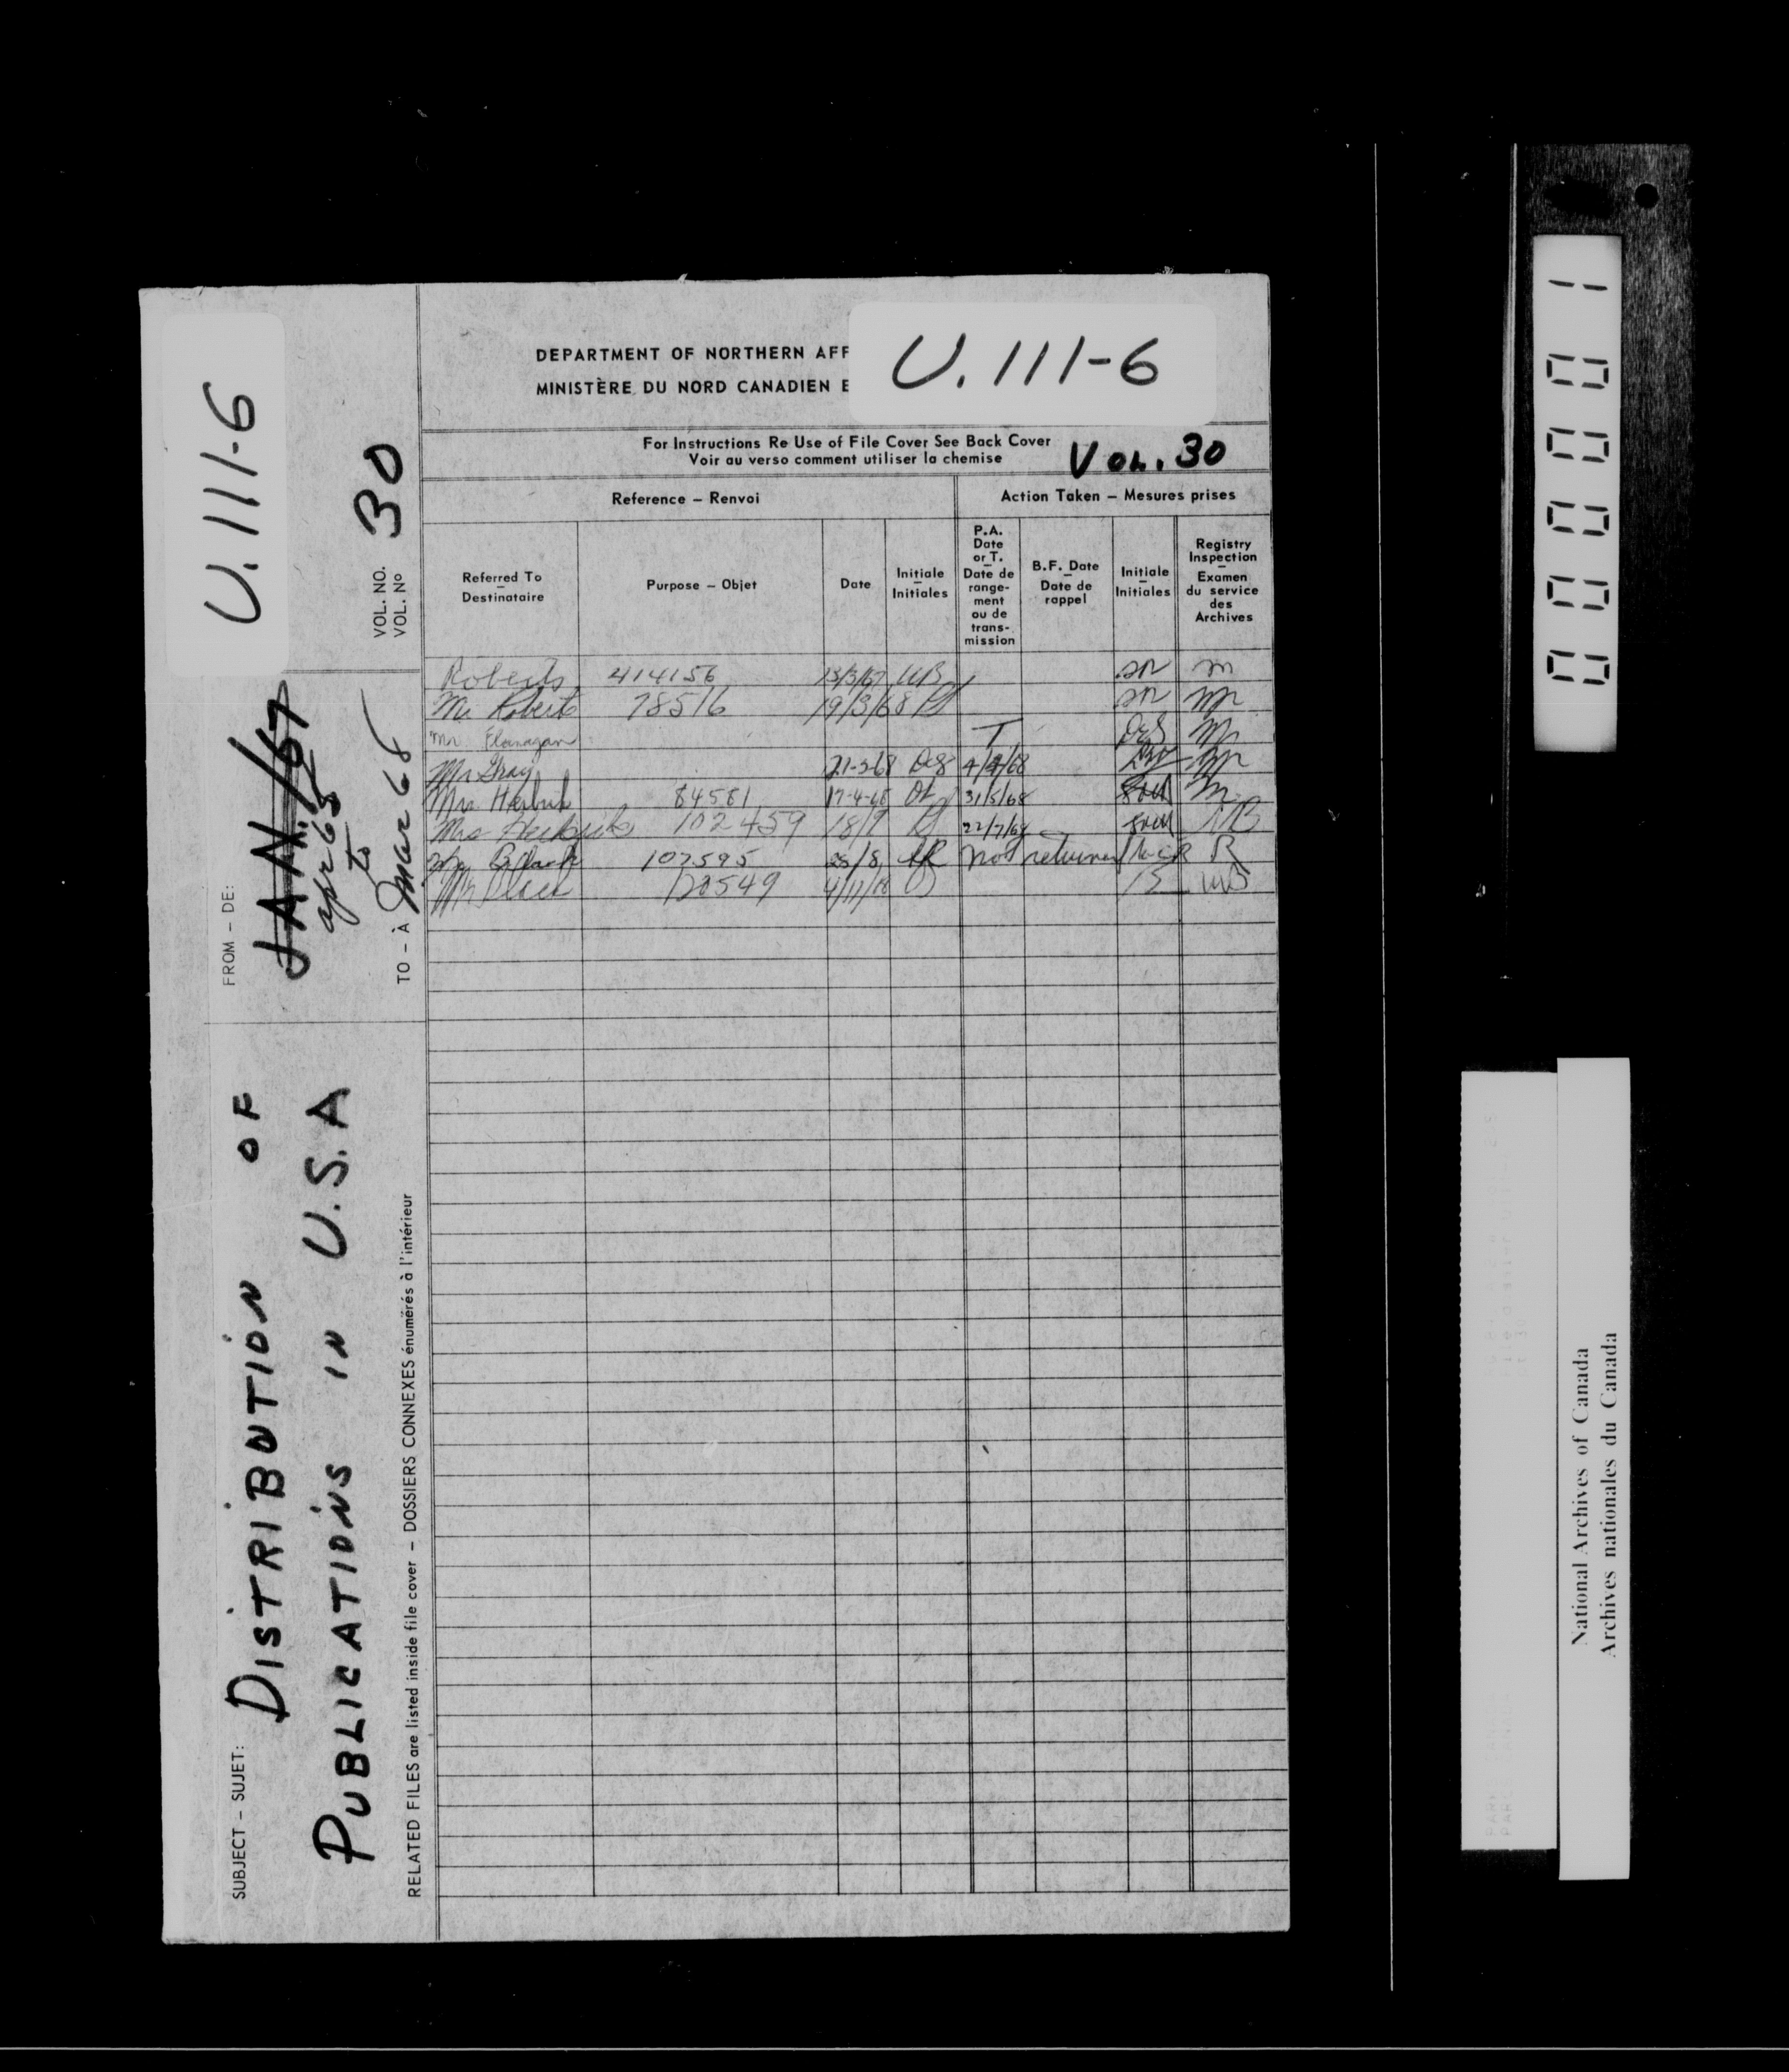 DEPARTMENT OF NORTHERN AFF
MINISTÈRE DU NORD CANADIEN E
U.111-6
For Instructions Re Use of File Cover See Back Cover
Voir au verso comment utiliser la chemise
VOL. 30
Reference – Renvoi
Action Taken – Mesures prises
Referred To
–
Destinataire
Purpose – Objet
Date
Initiale
–
Initiales
P.A.
Date
or T.
–
Date de
range-
ment
ou de
trans-
mission
B.F. Date
–
Date de
rappel
Initiale
–
Initiales
Registry
Inspection
–
Examen
du service
des
Archives
Roberts 414156 13/3/67
Mr Roberts 78516 19/3/68
Mr Flanagan T
Mr Gray 21-3-68 4/4/68
Mrs 84581 17-4-68 31/5/68
Mrs 102459 18/7 22/7/68
107595 28/8 not returned R
Mr Black 120549 4/11/68
U.111-6
VOL. NO.
VOL. Nº
30
FROM – DE:
JAN./67
apr 65
to
TO – À
Mar 68
SUBJECT – SUJET:
DISTRIBUTION OF
PUBLICATIONS IN U.S.A
RELATED FILES are listed inside file cover – DOSSIERS CONNEXES énumérés à l'intérieur
000001
National Archives of Canada
Archives nationales du Canada